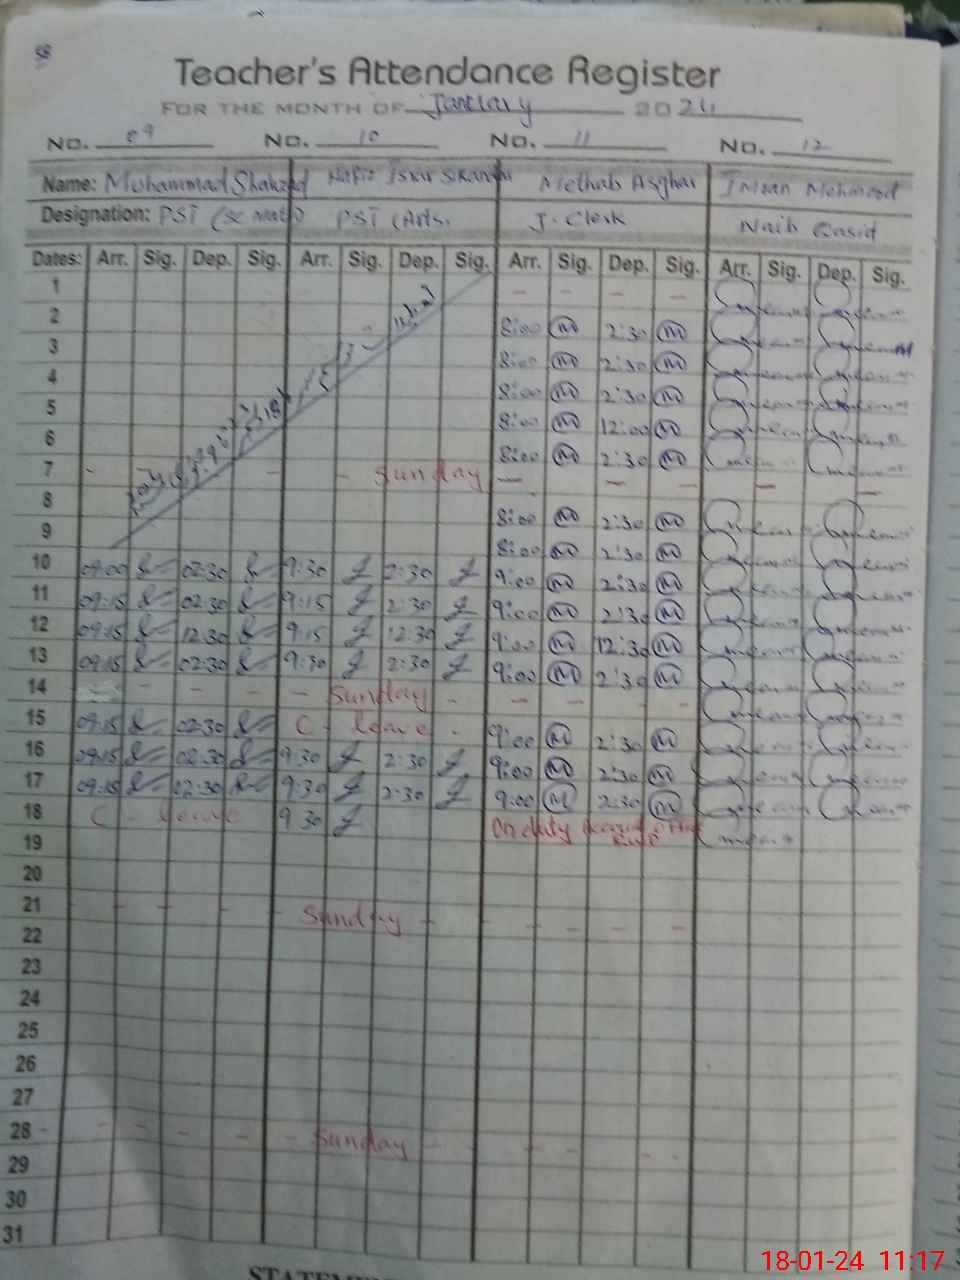 58
Teacher's Attendance Register
FOR THE MONTH OF January 2024
No. 09 No. 10 No. 11 No. 12
Name: Muhammad Shahzad Hafiz Israr Sikandar Methab Asghar Imran Mehmood
Designation: PST (Sc Math) PST (Arts) J. Clerk Naib Qasid
Dates: Arr. Sig. Dep. Sig. Arr. Sig. Dep. Sig. Arr. Sig. Dep. Sig. Arr. Sig. Dep. Sig.
1 - - - -
2 8:00 M 2:30 M
3 8:00 M 2:30 M
4 8:00 M 2:30 M
5 8:00 M 12:00 M
6 8:00 M 2:30 M
7 - - - Sunday - - - - -
8 8:00 M 2:30 M
9 8:00 M 2:30 M
10 09:00 02:30 9:30 2:30 9:00 M 2:30 M
11 09:15 02:30 9:15 2:30 9:00 M 2:30 M
12 09:15 12:30 9:15 12:30 9:00 M 12:30 M
13 09:15 02:30 9:30 2:30 9:00 M 2:30 M
14 - - - - Sunday - - - - -
15 09:15 02:30 C - leave - 9:00 M 2:30 M
16 09:15 02:30 9:30 2:30 9:00 M 2:30 M
17 09:15 02:30 9:30 2:30 9:00 M 2:30 M
18 C - leave 9 30 On duty
19
20
21 - - - - Sunday - - - - -
22
23
24
25
26
27
28 - - - - - Sunday - - - - -
29
30
31
18-01-24 11:17